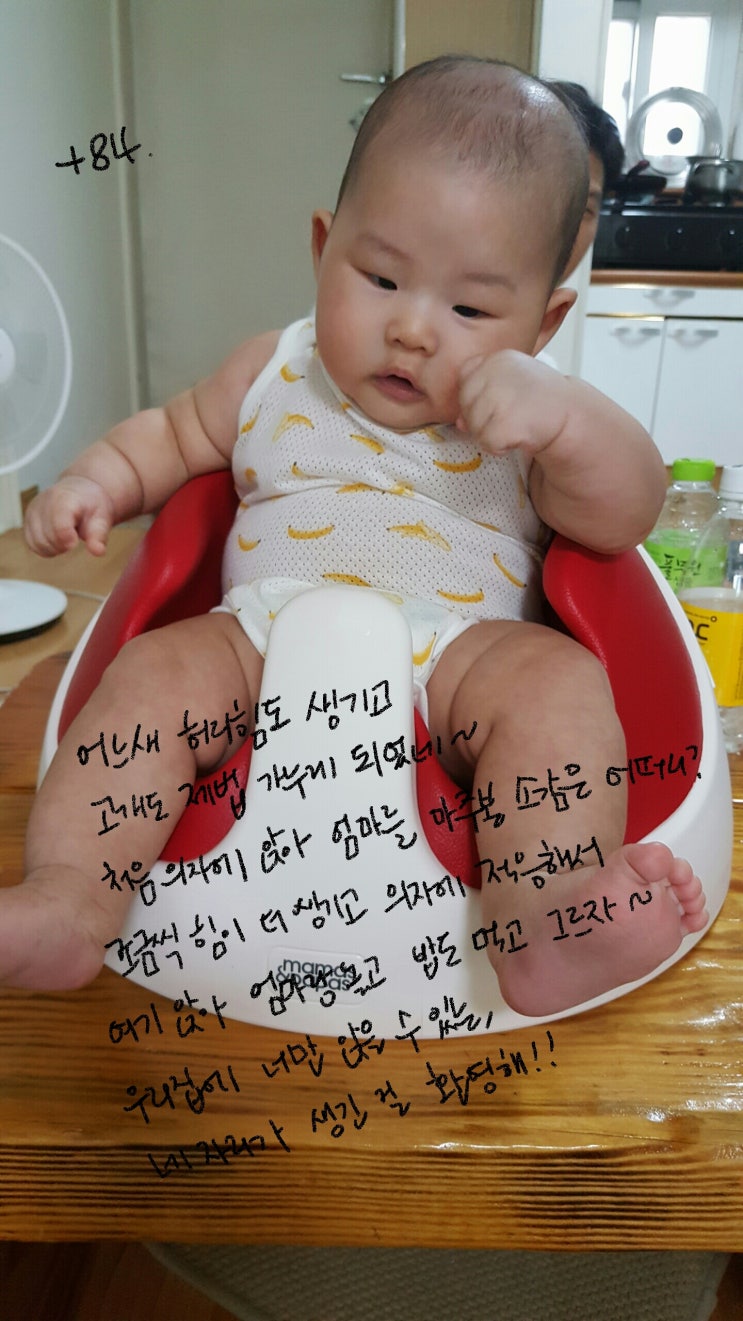 +84.
어느새 허리힘도 생기고
고개도 제법 가누게 되었네~
처음 의자에 앉아 엄마를 마주봉 소감은 어떠니?
조금씩 힘이 더 생기고 의자에 적응해서
여기 앉아 엄마랑 놀고 밥도 먹고 그르자~
우리집에 너만 앉을 수 있는,
네 자리가 생긴 걸 환영해!!
mamas
&papas
풀무원